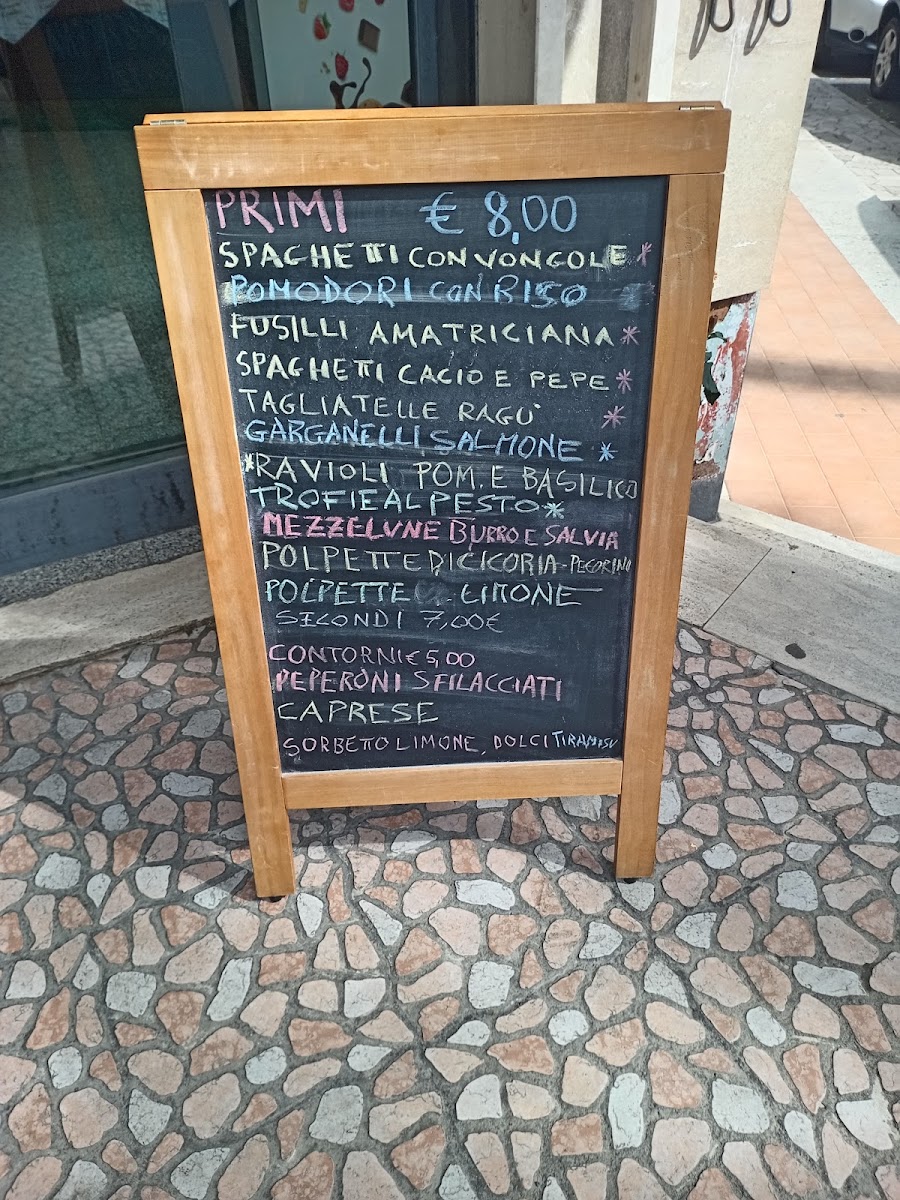 PRIMI € 8,00
SPAGHETTI CON VONGOLE *
POMODORI CON RISO
FUSILLI AMATRICIANA *
SPAGHETTI CACIO E PEPE *
TAGLIATELLE RAGÙ *
GARGANELLI SALMONE *
*RAVIOLI POM. E BASILICO
TROFIE AL PESTO *
MEZZELUNE BURRO E SALVIA
POLPETTE DI CICORIA - PECORINO
POLPETTE LIMONE
SECONDI 7,00€
CONTORNI € 5,00
PEPERONI SFILACCIATI
CAPRESE
SORBETTO LIMONE, DOLCI TIRAMISU